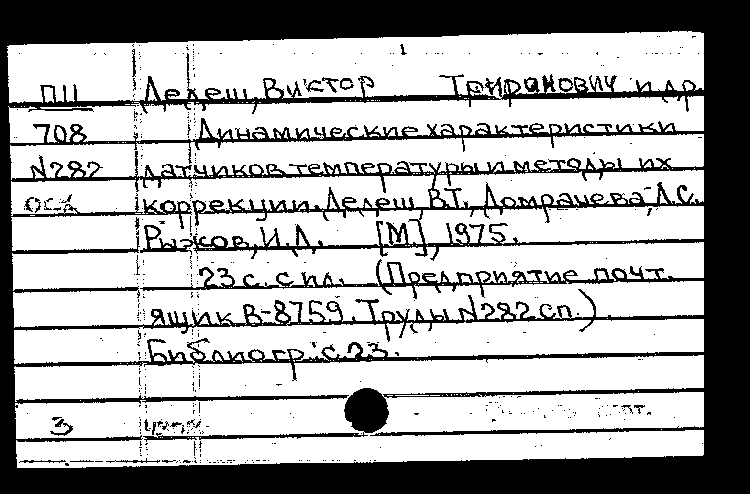 1
ПП Делеш, Виктор Тифранович и др.
708 Динамические характеристики
N282 датчиков температуры и методы их
коррекции. Делеш, В.Т., Домрачева, Л.С.
Рыжков, И.Л. [М], 1975.
23 с. с ил. (Предприятие почт.
ящик В-8759. Труды N282 сп.).
Библиогр.: с. 23.
3